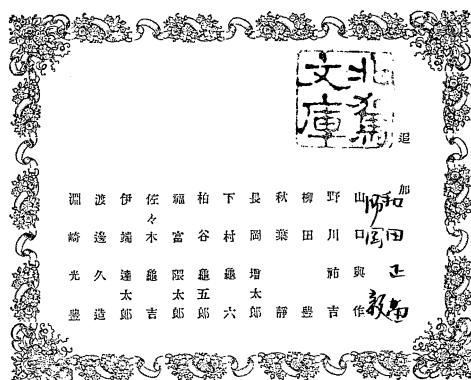 文庫
追
和田正
山口與作
野川祐吉
柳田豊
秋葉靜
長岡増太郎
下村龜六
柏谷龜五郎
福富隈太郎
佐々木龜吉
伊端達太郎
渡邊久造
淵崎光豊